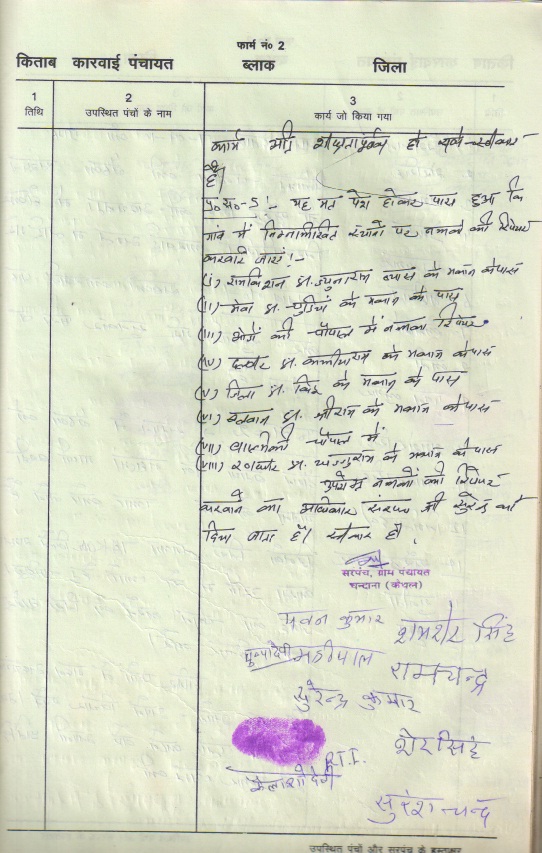 फार्म नं० 2
किताब कारवाई पंचायत ब्लाक जिला
1 2 3
तिथि उपस्थित पंचों के नाम कार्य जो किया गया
कार्य भी शीघ्रतापूर्वक हो
है।
प्र० स०-5 :- यह मत पेश होकर पास हुआ कि
गांव में निम्नलिखित स्थानों पर नलकों की रिपेयर
करवाई जाए :-
(i) रामकिशन के मकान के पास
(ii) मेवा के मकान के पास
(iii) की चौपाल में नलका रिपेयर
(iv) के मकान के पास
(v) जिला के मकान के पास
(vi) श्रीराम के मकान के पास
(vii) चौपाल में
(viii) के मकान के पास
उपरोक्त नलकों की रिपेयर
करवाने का अधिकार सरपंच श्री सुरेन्द्र को
दिया जाता है। स्वीकार है।
सरपंच, ग्राम पंचायत
चन्दाना (कैथल)
पवन कुमार शमशेर सिंह
महीपाल रामचन्द्र
सुरेन्द्र कुमार
शेर सिंह
R.T.I.
कैलाशो देवी
सुरेश चन्द्र
उपस्थित पंचों और सरपंच के हस्ताक्षर